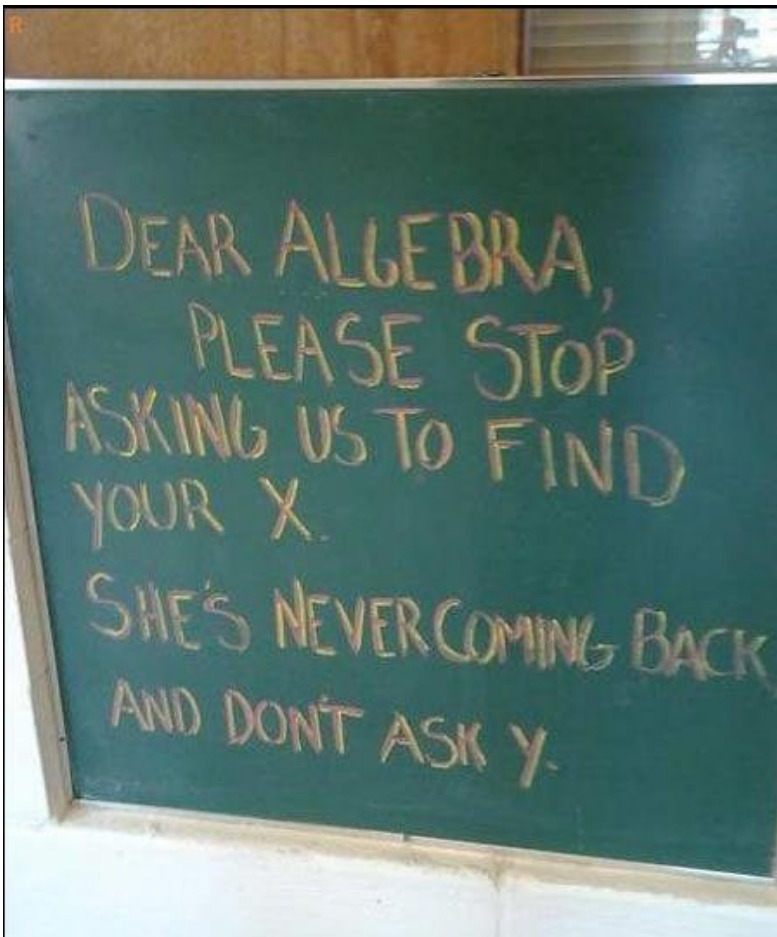 R
DEAR ALGEBRA,
PLEASE STOP
ASKING US TO FIND
YOUR X.
SHE'S NEVER COMING BACK
AND DON'T ASK Y.